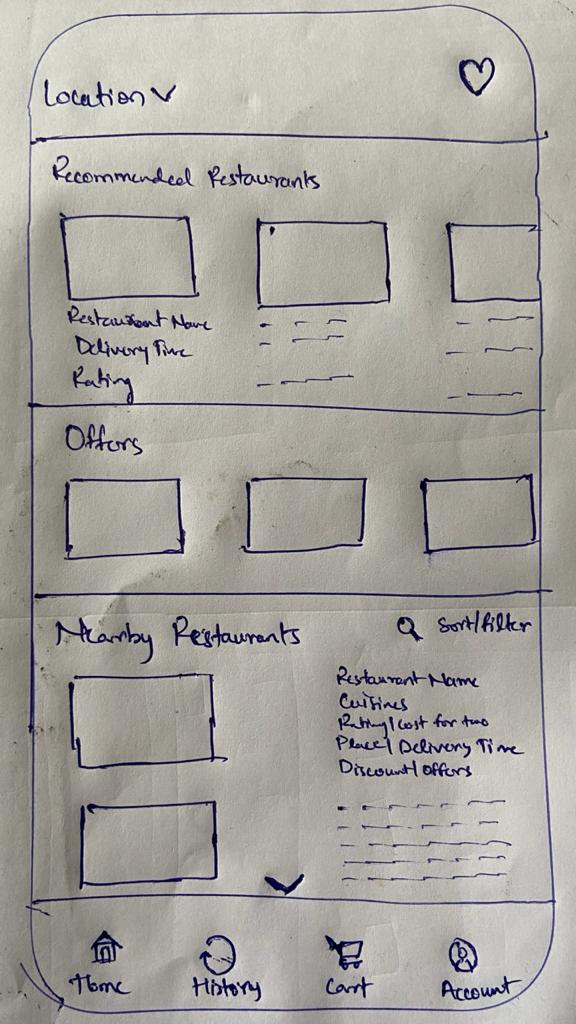 Location
Recommended Restaurants
Restaurant Name
Delivery Time
Rating
Offers
Nearby Restaurants
Sort/filter
Restaurant Name
Cuisines
Rating/cost for two
Place/Delivery Time
Discount/offers
Home
History
Cart
Account